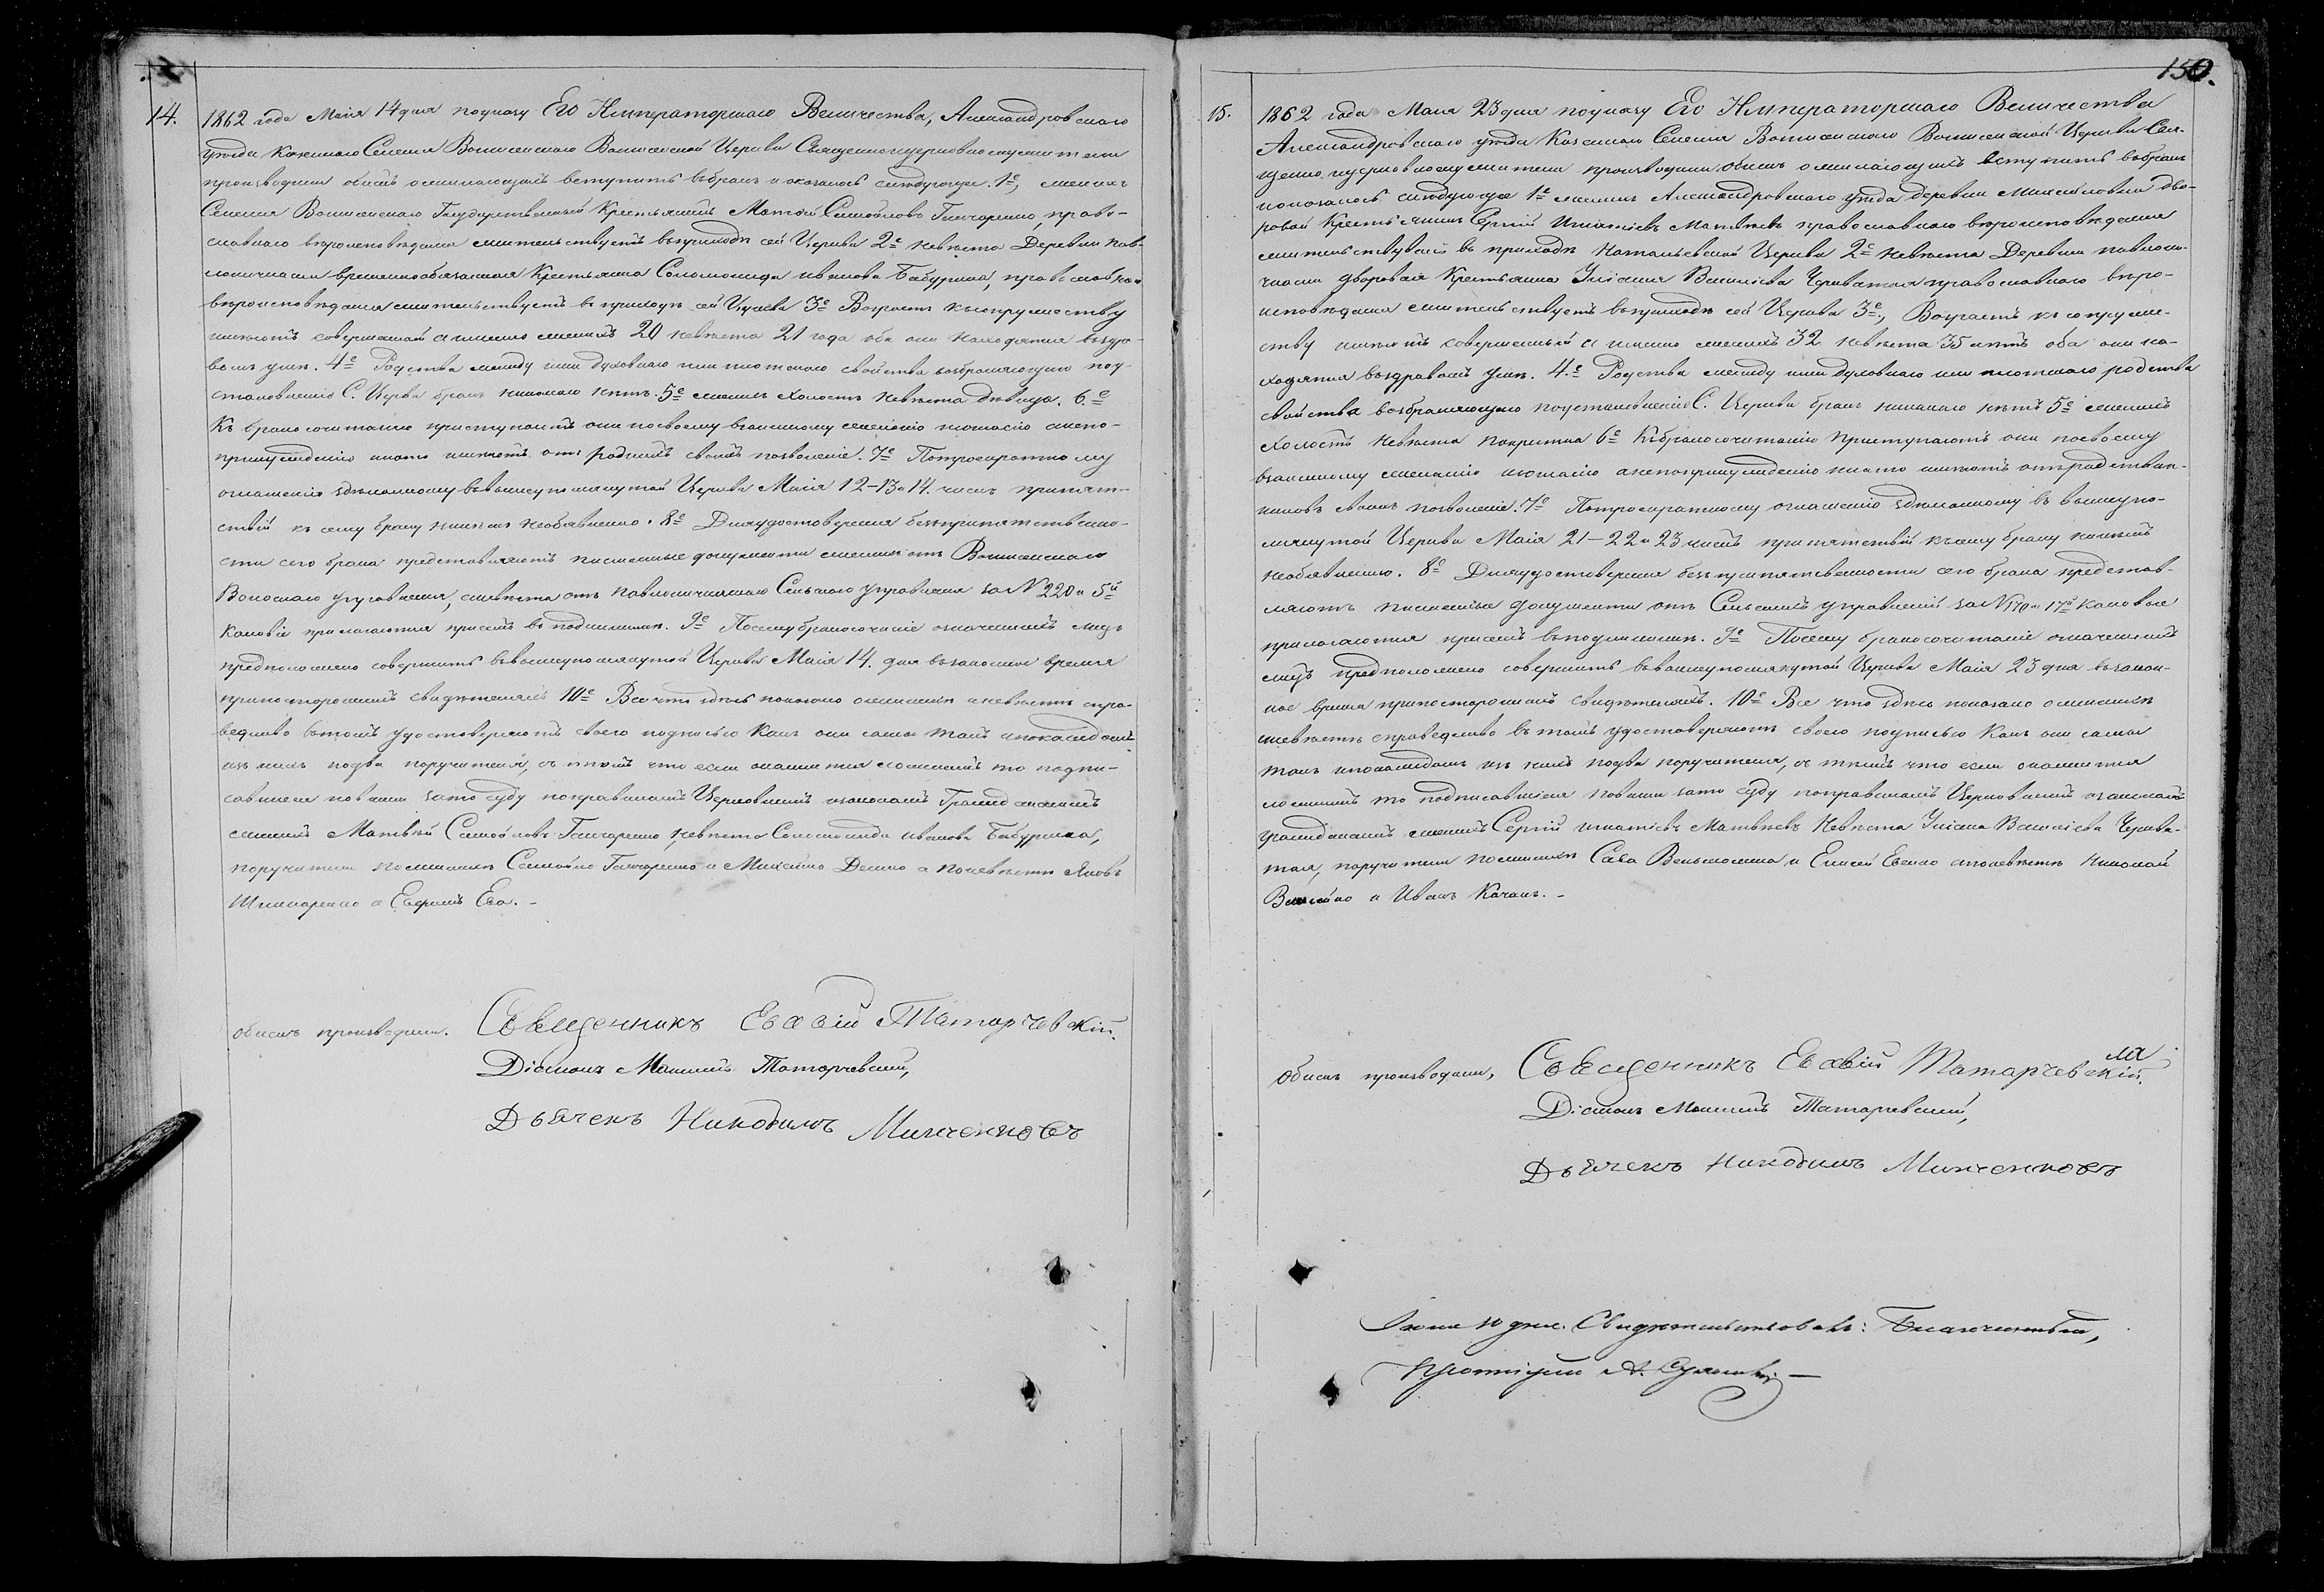 14.
1862 года Маія 14 дня по указу Его Императорскаго Величества, Александровскаго
уѣзда казеннаго Селенія Вознесенской Церкви Священноцерковнослужители
производили обыскъ о желающихъ вступить въ бракъ и оказалось слѣдующее. 1е, женихъ
Селенія Государственный Крестьянинъ Матвѣй Самойловъ Гончаренко, право-
славнаго вѣроисповѣданія жительствуетъ въ приходѣ сей Церкви 2е невѣста Деревни Пав-
временнообязанная Крестьянка Соломонида Иванова Бабурина, православнаго
вѣроисповѣданія жительствуетъ въ приходѣ сей Церкви 3е Возрастъ къ супружеству
имѣютъ совершенный а именно женихъ 20 невѣста 21 года оба они находятся въ здра-
вомъ умѣ. 4е Родства между ими духовнаго или плотскаго свойства возбраняющаго по у-
становленію С. Церкви бракъ никакаго нѣтъ. 5е женихъ холостъ невѣста дѣвица. 6.е
Къ бракосочитанію приступаютъ они по своему взаимному желанію и согласію а не по
принужденію и на то имѣютъ отъ родныхъ своихъ позволеніе. 7е По троекратному
оглашенію здѣланному въ вышеупомянутой Церкви Маія 12-13 и 14. чиселъ препят-
ствій къ сему браку никѣмъ не объявленно. 8е Для удостовѣренія безпрепятственно-
сти сего брака представляютъ писменные документы женихъ отъ
Волоснаго управленія, а невѣста отъ Сельскаго управленія за № 220 и 5й
каковіе прилагаются при семъ въ подлинникѣ. 9е По сему бракосочитаніе означенныхъ лицъ
предположено совершить въ вышеупомянутой Церкви Маія 14. дня въ законное время
при постороннихъ свидѣтеляхъ 10е Все что здѣсь показано о женихѣ и невѣстѣ спра-
ведливо въ томъ удостовѣряютъ своею подписью какъ они сами такъ и по каждомъ
изъ нихъ по два поручителя, съ тѣмъ что если окажится ложнымъ то подпи-
савшіеся повинны за то суду по правиламъ Церковнымъ и законамъ Гражданскимъ
женихъ Матвѣй Самойловъ Гончаренко, невѣста Соломонида Иванова Бабурина,
поручители по женихѣ Самойло Гончаренко и Михайло Демко а по невѣстѣ Яковъ
Шинкаренко и Ефремъ Ева. -
Обыскъ производили. Священникъ Евфвій Татарчевскій.
Діаконъ Татарчевскій,
Дьячекъ Никодимъ Минченковъ
150.
15.
1862 года Маія 23 дня по указу Его Императорскаго Величества
Александровскаго уѣзда Казеннаго Селенія Церкви Свя-
щенноцерковнослужители производили обыскъ о желающихъ вступить въ бракъ
и оказалось слѣдующее 1е женихъ Александровскаго уѣзда деревни дво-
ровой Крестьянинъ Сергій Игнатіевъ Матвѣевъ православнаго вѣроисповѣданія
жительствуетъ въ приходѣ Натальевской Церкви 2е невѣста Деревни
дворовая Крестьянка Уліанія Василіева православнаго вѣро-
исповѣданія жительствуетъ въ приходѣ сей Церкви 3е, Возрастъ къ супруже-
ству имѣютъ совершенный а именно женихъ 32 невѣста 35 лѣтъ оба они на-
ходятся въ здравомъ умѣ. 4.е Родства между ими духовнаго или плотскаго родства
свойства возбраняющаго по установленію С. Церкви бракъ никакаго нѣтъ 5е женихъ
холостъ невѣста покритка 6е Къ бракосочитанію приступаютъ они по своему
взаимному желанію и согласію а не по принужденію и на то имѣютъ отъ родствен-
никовъ своихъ позволеніе. 7е По троекратному оглашенію здѣланному въ вышеупо-
мянутой Церкви Маія 21-22 и 23 чиселъ препятствій къ сему браку никѣмъ
не объявленно. 8е Для удостовѣренія безпрепятственности сего брака представ-
ляютъ писменные документы отъ Сельскихъ управленій за № каковые
прилагаются при семъ въ подлинникѣ. 9е По сему бракосочитаніе означенныхъ
лицъ предположено совершить въ вышеупомянутой Церкви Маія 23 дня въ закон-
ное время при постороннихъ свидѣтеляхъ. 10е Все что здѣсь показано о женихѣ
и невѣстѣ справедливо въ томъ удостовѣряютъ своею подписью какъ они сами
такъ и по каждомъ изъ нихъ по два поручителя, съ тѣмъ что если окажится
ложнымъ то подписавшіеся повинны за то суду по правиламъ Церковнымъ и законамъ
гражданскимъ женихъ Сергій Игнатіевъ Матвѣевъ Невѣста Василіева
поручители по женихѣ Сава и Елисей Евенко а по невѣстѣ Николай
и Иванъ Качанъ. -
Обыскъ производили, Священникъ Евфвій Татарчевскій.
Діаконъ Татарчевскій,
Дьячекъ Никодимъ Минченковъ
Іюня 10 дня. Свидѣтельствовалъ: Благочинный,
Протоіерей А.